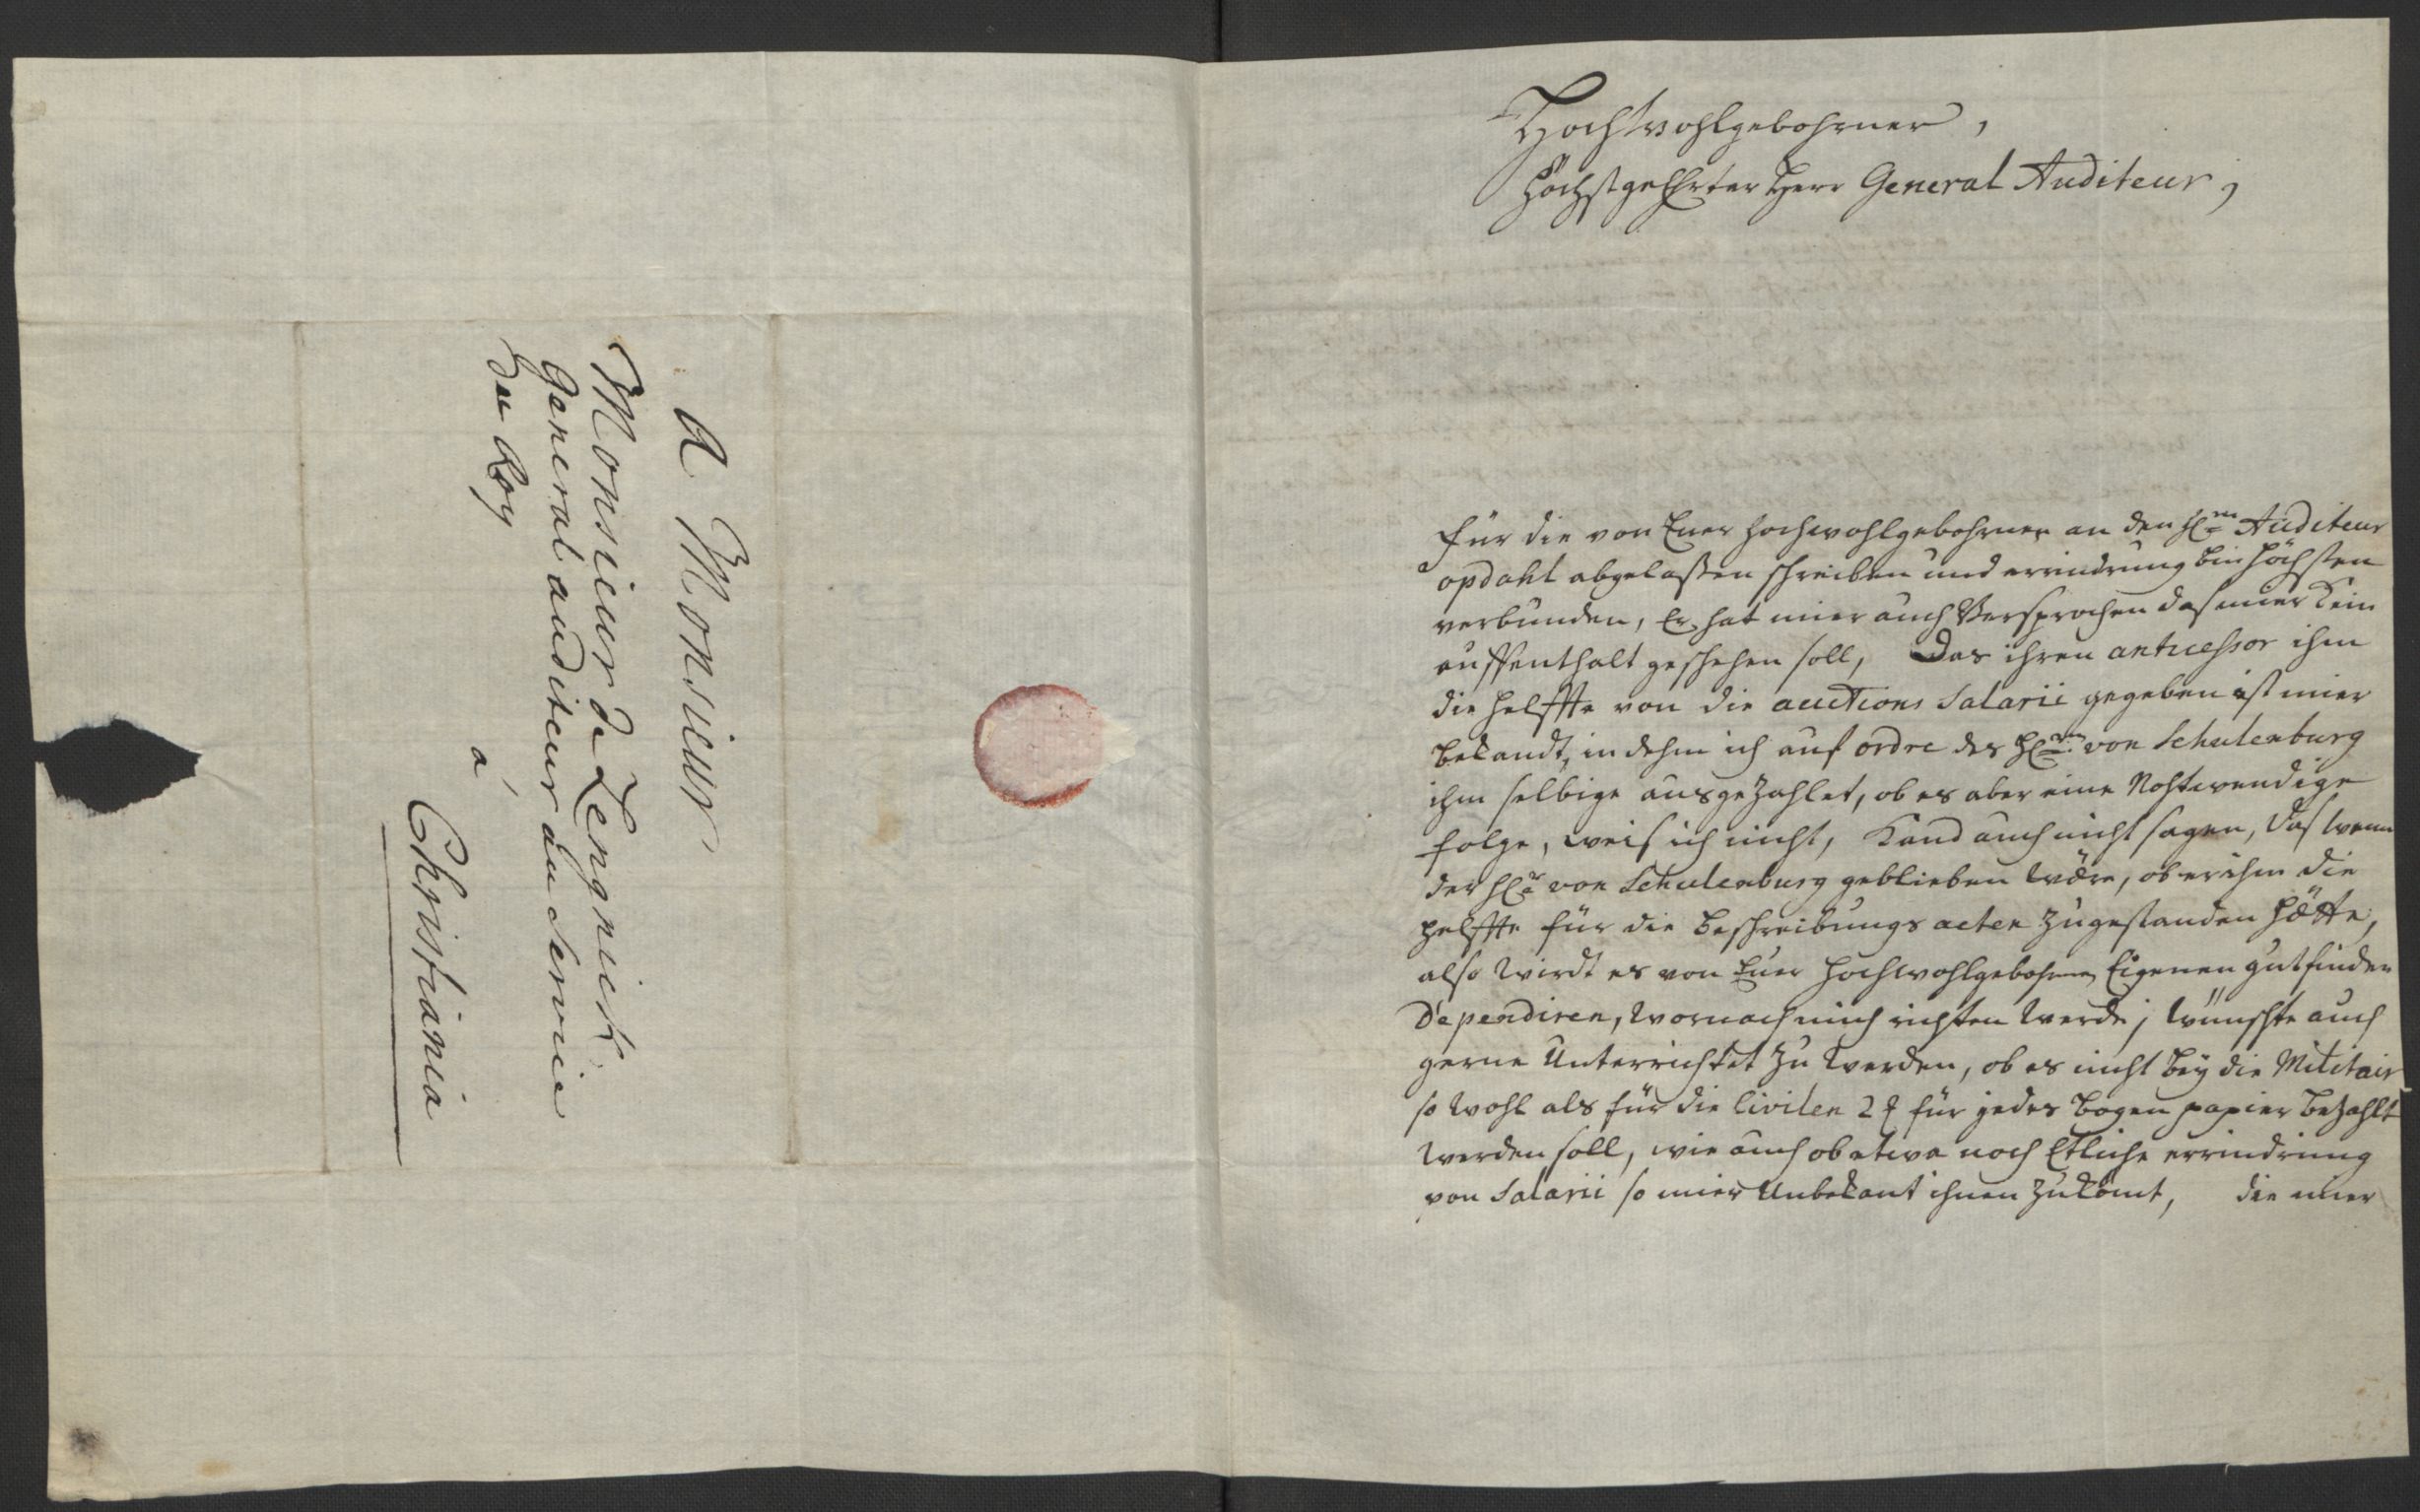 A Monsieur
Monsieur de Lengnick
General auditeur au Servie
du Roy
a
Christiania
Hochwohlgebohrner,
HöchstgeEhrter Herr General Auditeur,
für die von Euer Hochwohlgebohrnen an den H. Auditeur
opdahl abgelaßen schreiben und errindrung bin höchsten
verbunden, Er hat mier auch Versprochen das mier kein
auffenthalt geschehen soll, Das ihren antecessor ihm
die helffte von die auctions Salarii gegeben ist mier
bekandt, in dehm ich auf ordre des H. von Schulenburg
ihm selbige ausgezahlet, ob es aber eine Nohtwendige
folge, weis ich nicht, kand auch nicht sagen, das wenn
der H. von Schulenburg geblieben wäre, ob er ihm die
helffte für die beschreibungs acten zugestanden hätte,
also wirdt es von Euer Hochwohlgebohrnen Eigenen gutfinden
Dependiren, wornach mich richten werde; wünschte auch
gerne Unterrichtet zu werden, ob es nicht bey die Militair
so wohl als für die Civilen 2 für jedes bogen papier bezahlt
werden soll, wie auch ob etwa noch Etliche errindrung
von Salarii so mier Unbekant ihnen zukömt, die mier